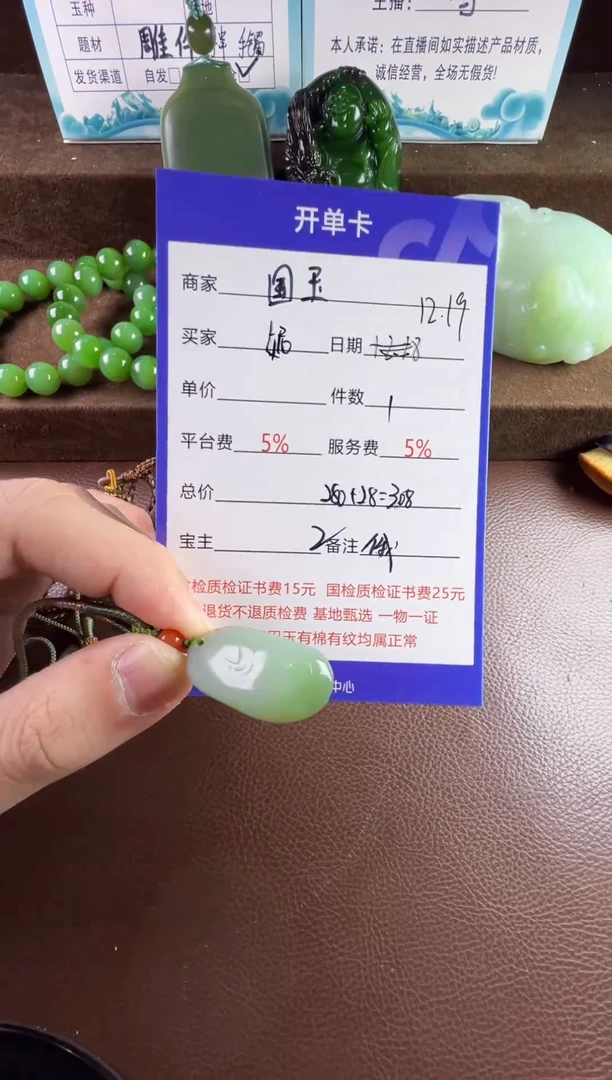 玉种 地
题材 雕件 手镯
发货渠道 自发□ ✓
主播:
本人承诺:在直播间如实描述产品材质,
诚信经营,全场无假货!
开单卡
商家 国玉
12.19
买家 日期
单价 件数 1
平台费 5% 服务费 5%
总价 280+28=308
宝主 2 备注 俄
检质检证书费15元 国检质检证书费25元
退货不退质检费 基地甄选 一物一证
玉有棉有纹均属正常
中心